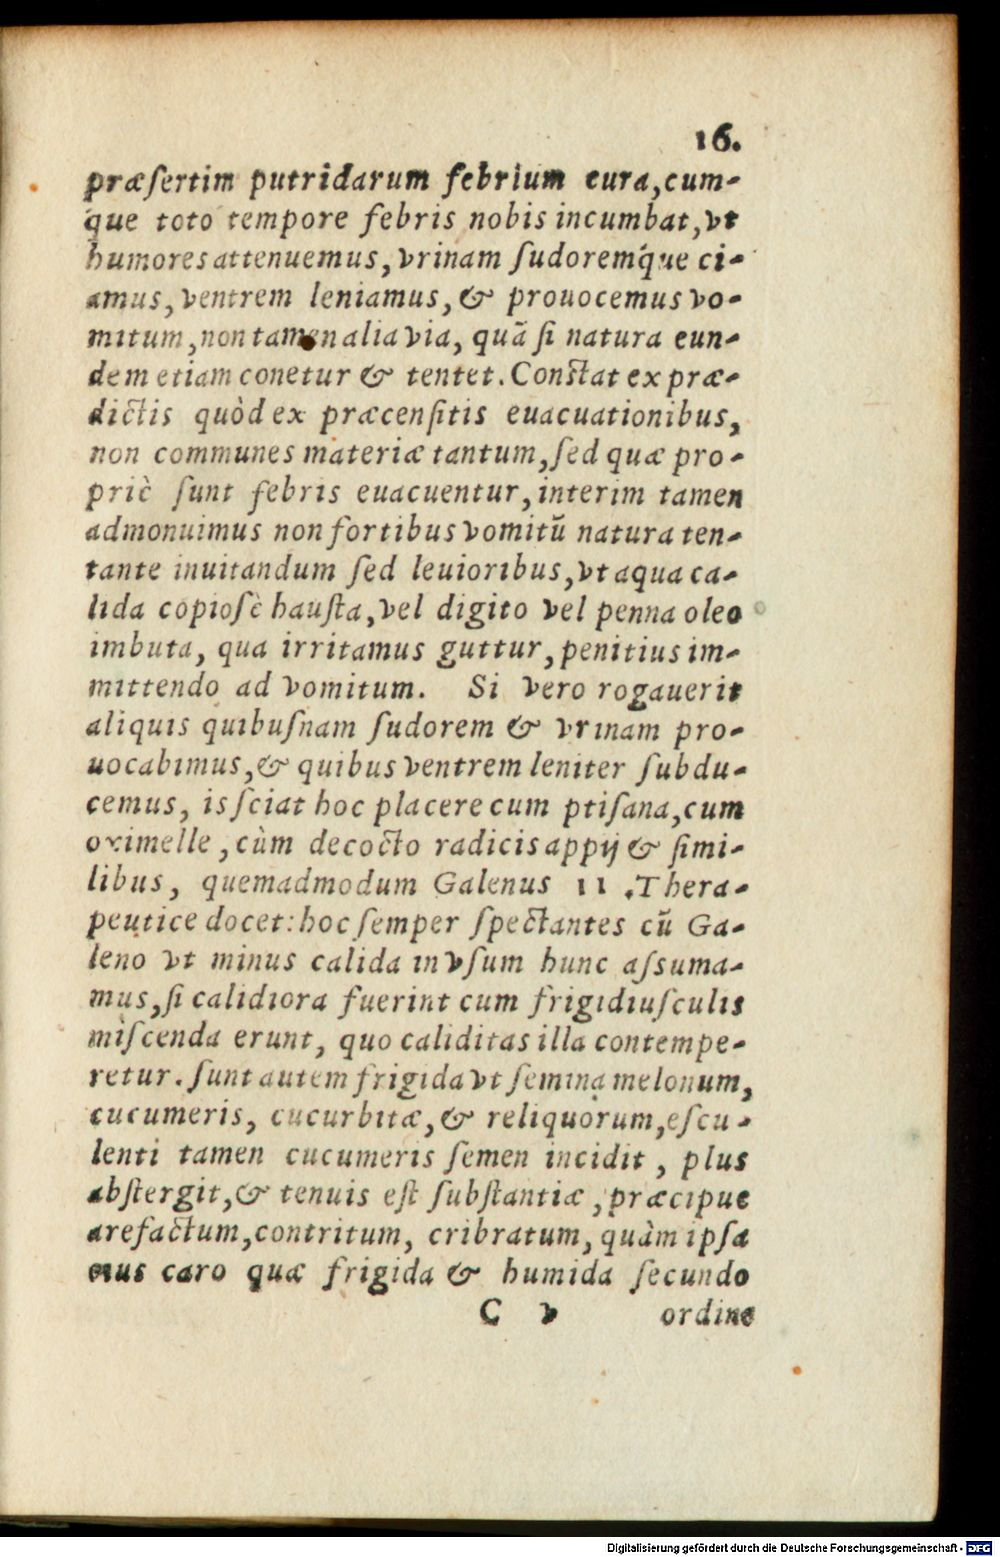 16.
præſertim putridarum febrium cura, cum-
que toto tempore febris nobis incumbat, vt
humores attenuemus, vrinam ſudoremq́ue ci-
amus, ventrem leniamus, & prouocemus vo-
mitum, non tamen alia via, quā ſi natura eun-
dem etiam conetur & tentet. Conſtat ex præ-
dictis quòd ex præcenſitis euacuationibus,
non communes materiæ tantum, ſed quæ pro-
priè ſunt febris euacuentur, interim tamen
admonuimus non fortibus vomitū natura ten-
tante inuitandum ſed leuioribus, vt aqua ca-
lida copioſè hauſta, vel digito vel penna oleo
imbuta, qua irritamus guttur, penitius im-
mittendo ad vomitum. Si vero rogauerit
aliquis quibuſnam ſudorem & vrinam pro-
uocabimus, & quibus ventrem leniter ſubdu-
cemus, is ſciat hoc placere cum ptiſana, cum
oximelle, cùm decocto radicis appij & ſimi-
libus, quemadmodum Galenus 11 .Thera-
peutice docet: hoc ſemper ſpectantes cū Ga-
leno vt minus calida in vſum hunc aſsuma-
mus, ſi calidiora fuerint cum frigidiuſculis
miſcenda erunt, quo caliditas illa contempe-
retur. ſunt autem frigida vt ſemina melonum,
cucumeris, cucurbitæ, & reliquorum, eſcu-
lenti tamen cucumeris ſemen incidit, plus
abſtergit, & tenuis eſt ſubſtantiæ, præcipue
arefactum, contritum, cribratum, quàm ipſa
eius caro quæ frigida & humida ſecundo
C v ordine
Digitalisierung gefördert durch die Deutsche Forschungsgemeinschaft - DFG